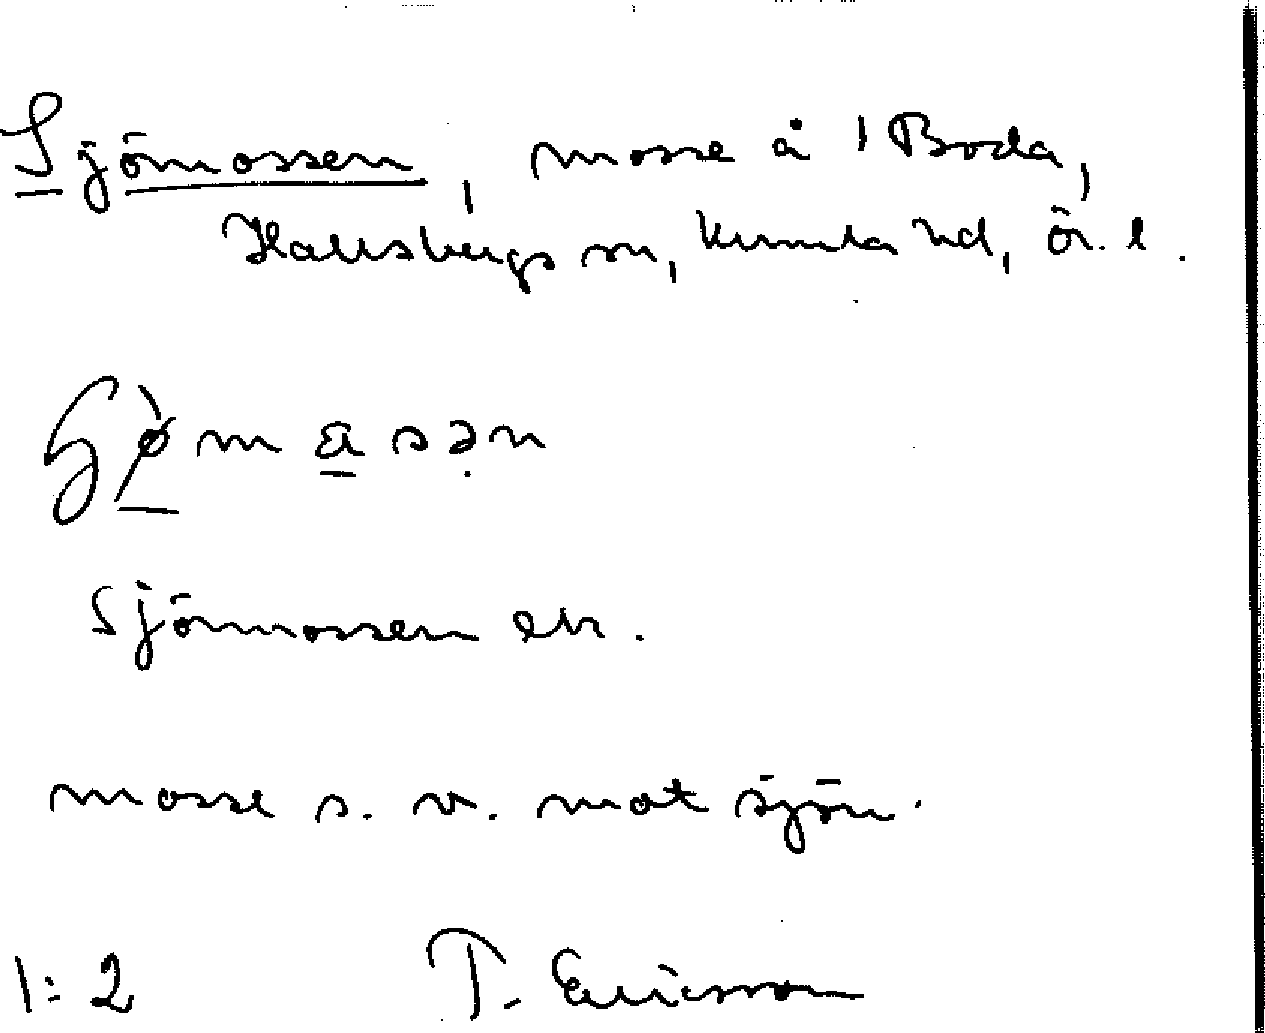 Sjömossen, mosse å 1 Boda,
Hallsbergs sn, Kumla hd, Ör. l.
masən
Sjömossen ek.
mosse s. v. mot sjön.
1:2 T. Ericsson